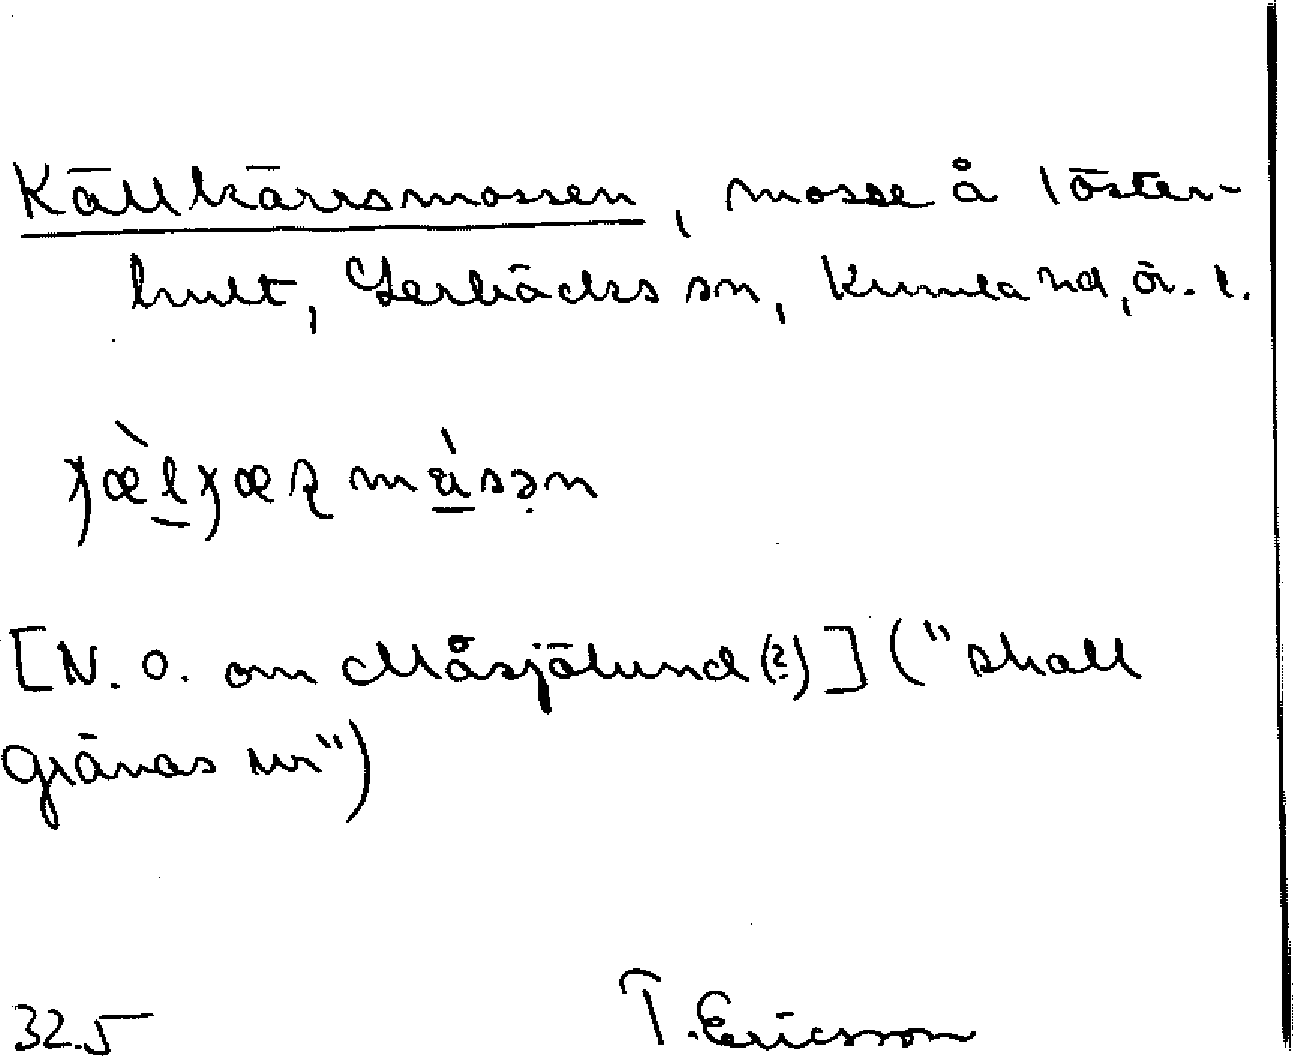 Källkärrsmossen, mosse å 1 öster-
hult, Lerbäcks sn, Kumla hd, ör. l.
[N. O. om Måsjölund (?)] ("skall
grävas ur")
32.5 T. Ericsson